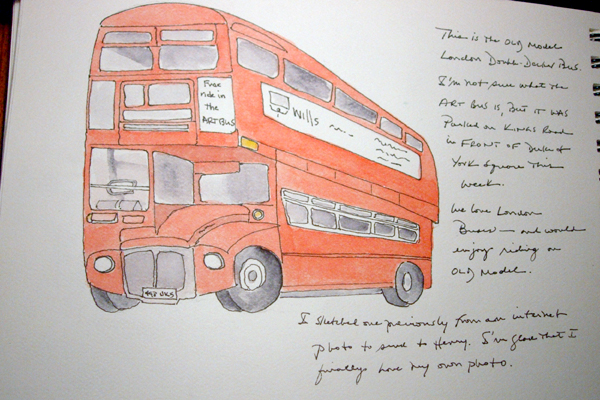 Free
ride in
the
ART BUS
Wills
This is the Old Model
London Double-Decker Bus.
I'm not sure what the
ART BUS is, but it was
Parked on Kings Road
in FRONT OF Duke of
York Square This
week.
We love London
Buses — and would
enjoy riding an
OLD Model.
I sketched one previously from an internet
photo to send to Henry. I'm glad that I
finally have my own photo.